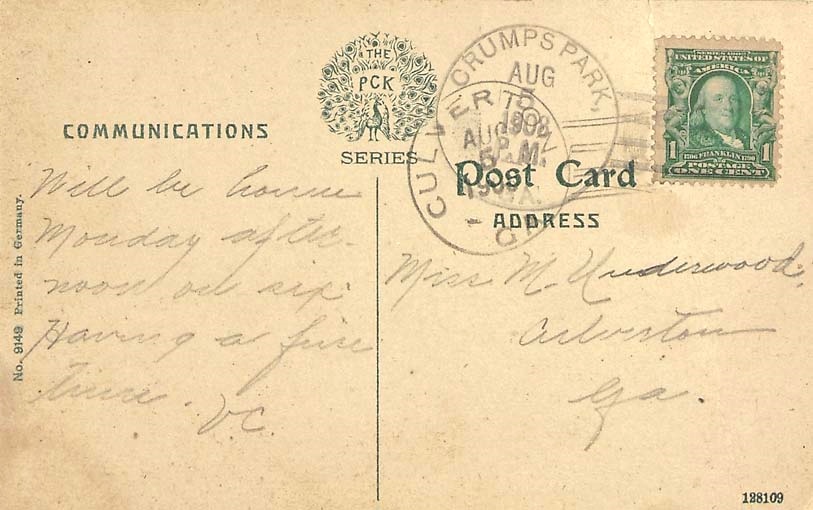 THE
PCK
SERIES
COMMUNICATIONS
Post Card
ADDRESS
CRUMPS PARK,
AUG
5
P.M.
CULVERTON
AUG
5
SERIES 1902
UNITED STATES OF
AMERICA
1706 FRANKLIN 1790
1 POSTAGE 1
ONE CENT
Will be home
Monday after-
noon on six.
Having a fine
time.
V.C.
Miss M. Underwood,
Culverton
Ga.
No. 9149 Printed in Germany.
128109